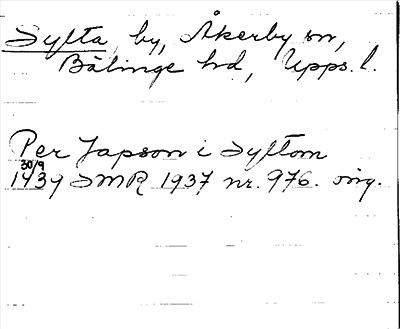 Sylta by, Åkerby sn,
Bälinge hd, Upps. l.
Per Japson i Syltom
30/9
1439 SMR 1937 nr. 976. orig.